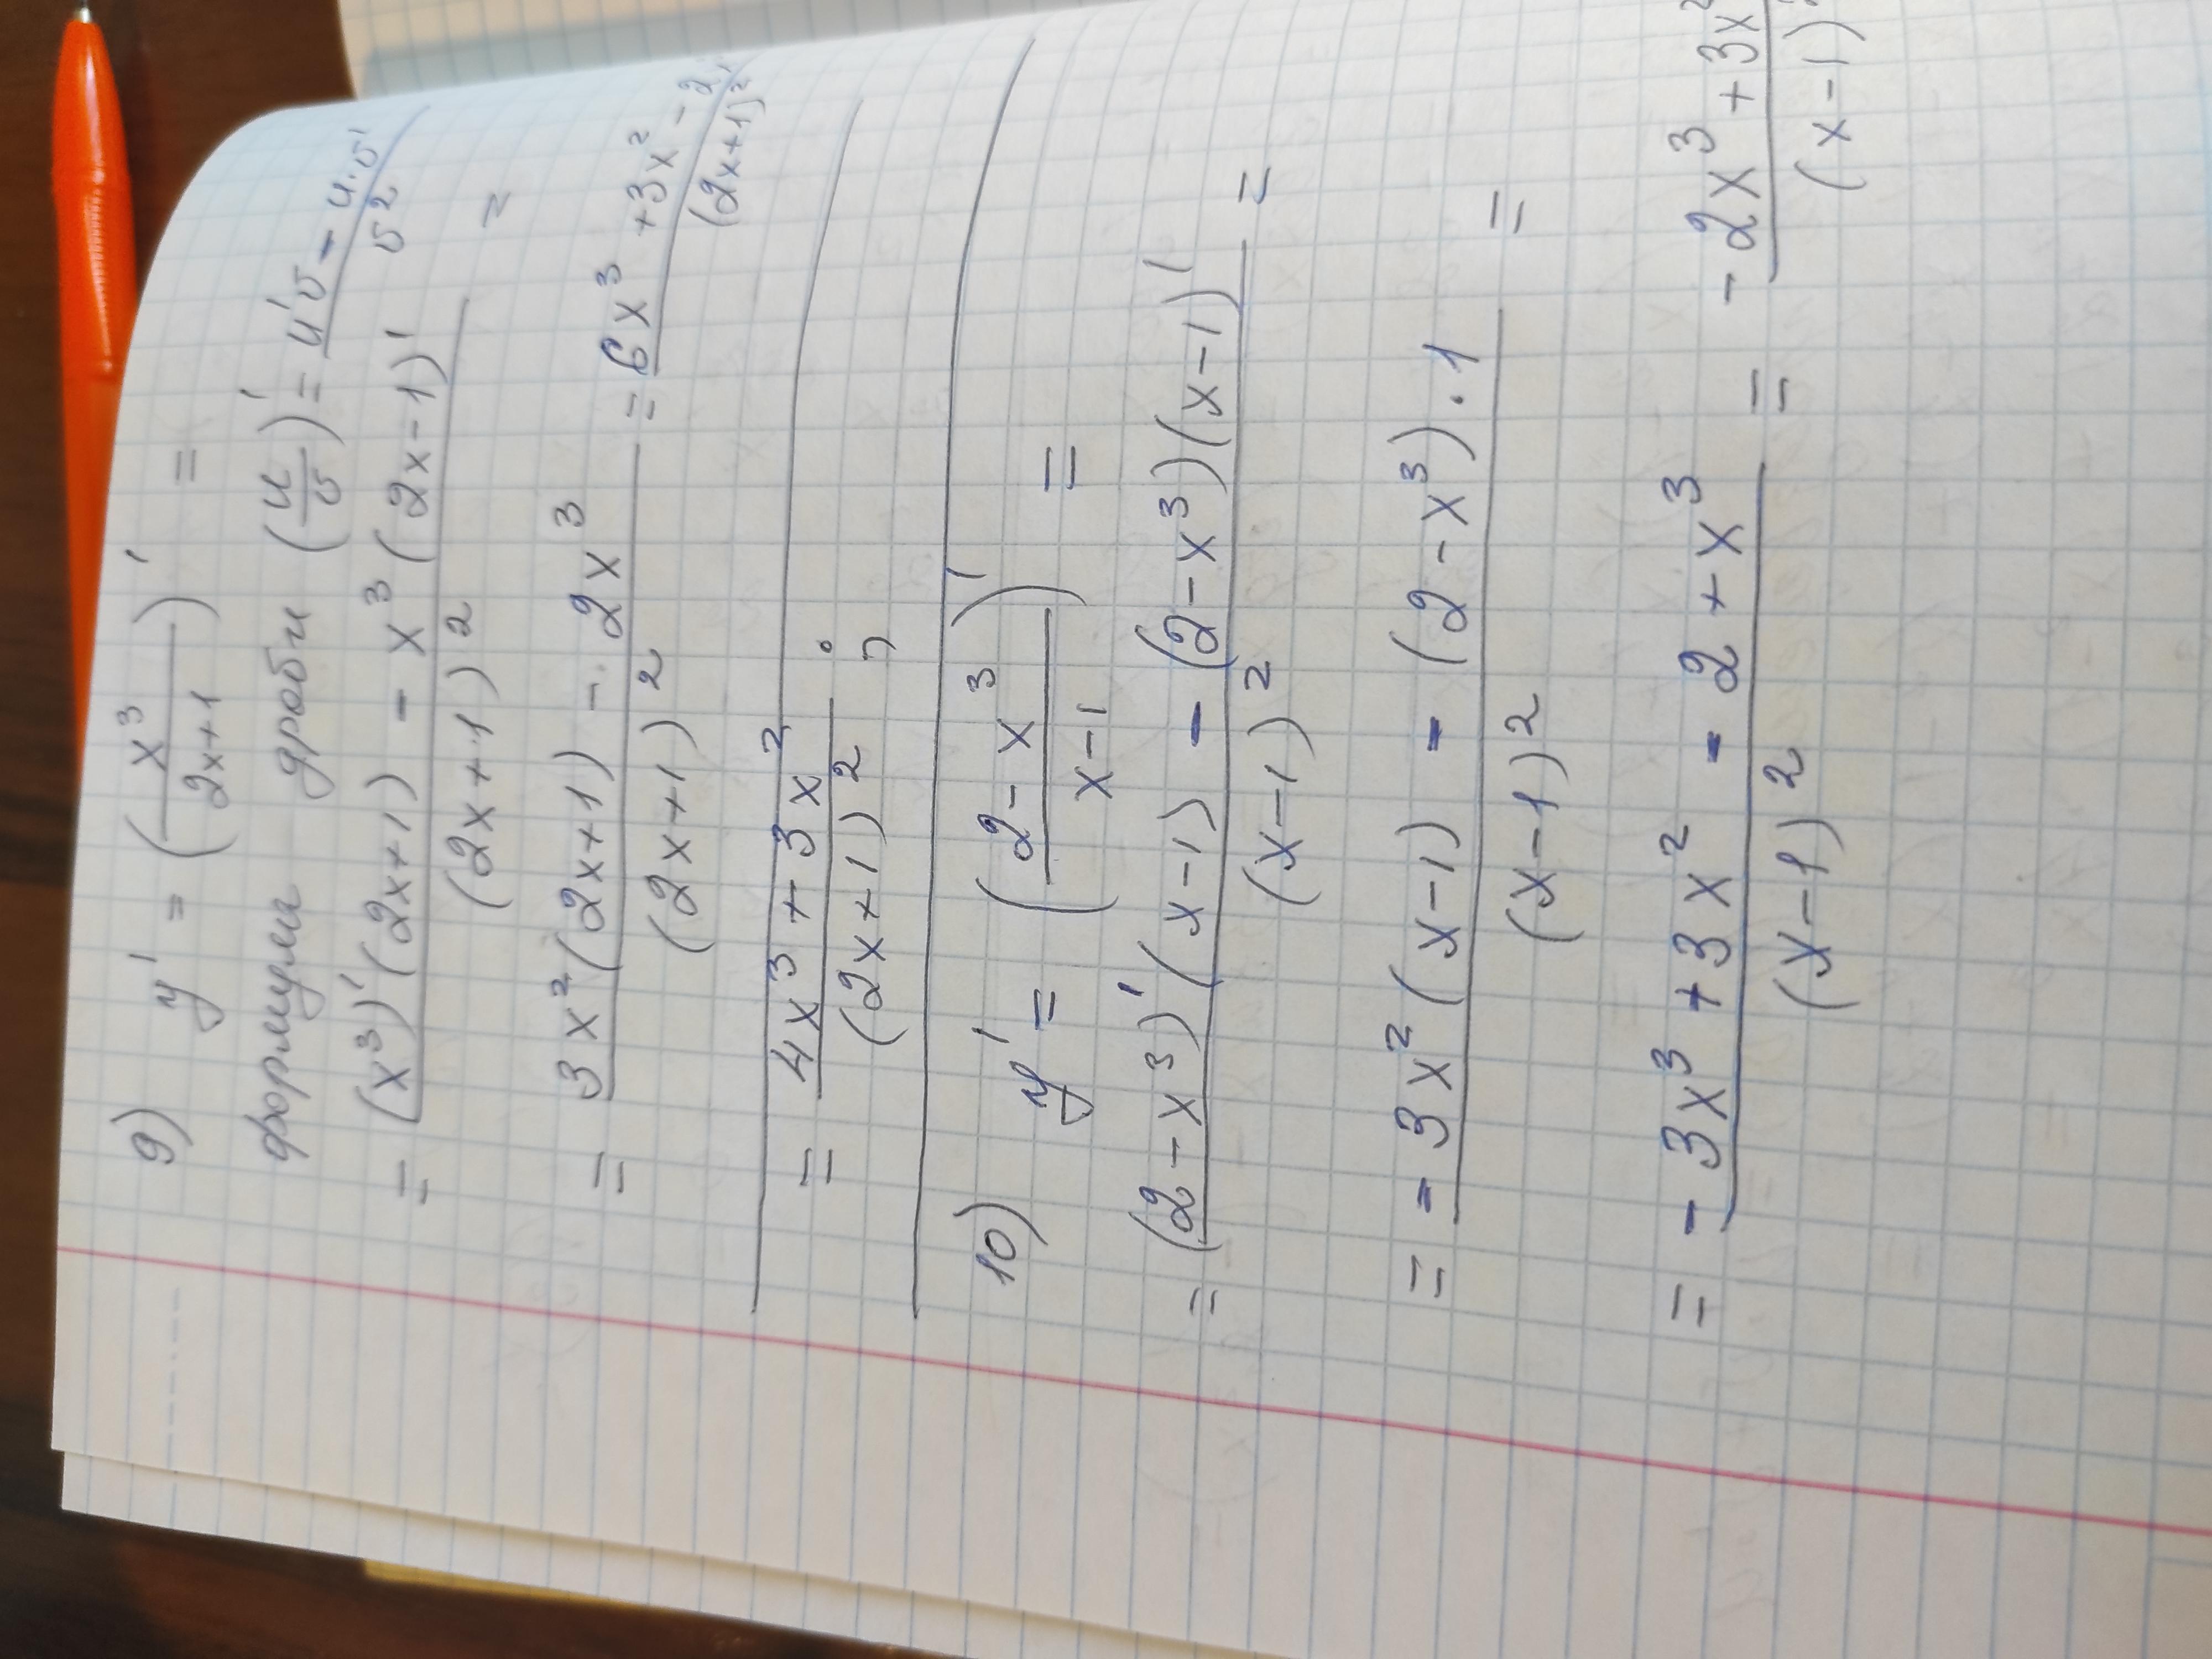 9) y' = (x³/(2x+1))' =
формулы дроби (u/v)' = (u'v - u·v')/v²
= ((x³)'(2x+1) - x³(2x-1)')/(2x+1)² =
= (3x²(2x+1) - 2x³)/(2x+1)² = (6x³+3x²-2)/(2x+1)²
= (4x³+3x²)/(2x+1)² ;
10) y' = ((2-x³)/(x-1))' =
= ((2-x³)'(x-1) - (2-x³)(x-1)')/(x-1)² =
= (-3x²(x-1) - (2-x³)·1)/(x-1)² =
= (-3x³+3x²-2+x³)/(x-1)² = (-2x³+3x²)/(x-1)